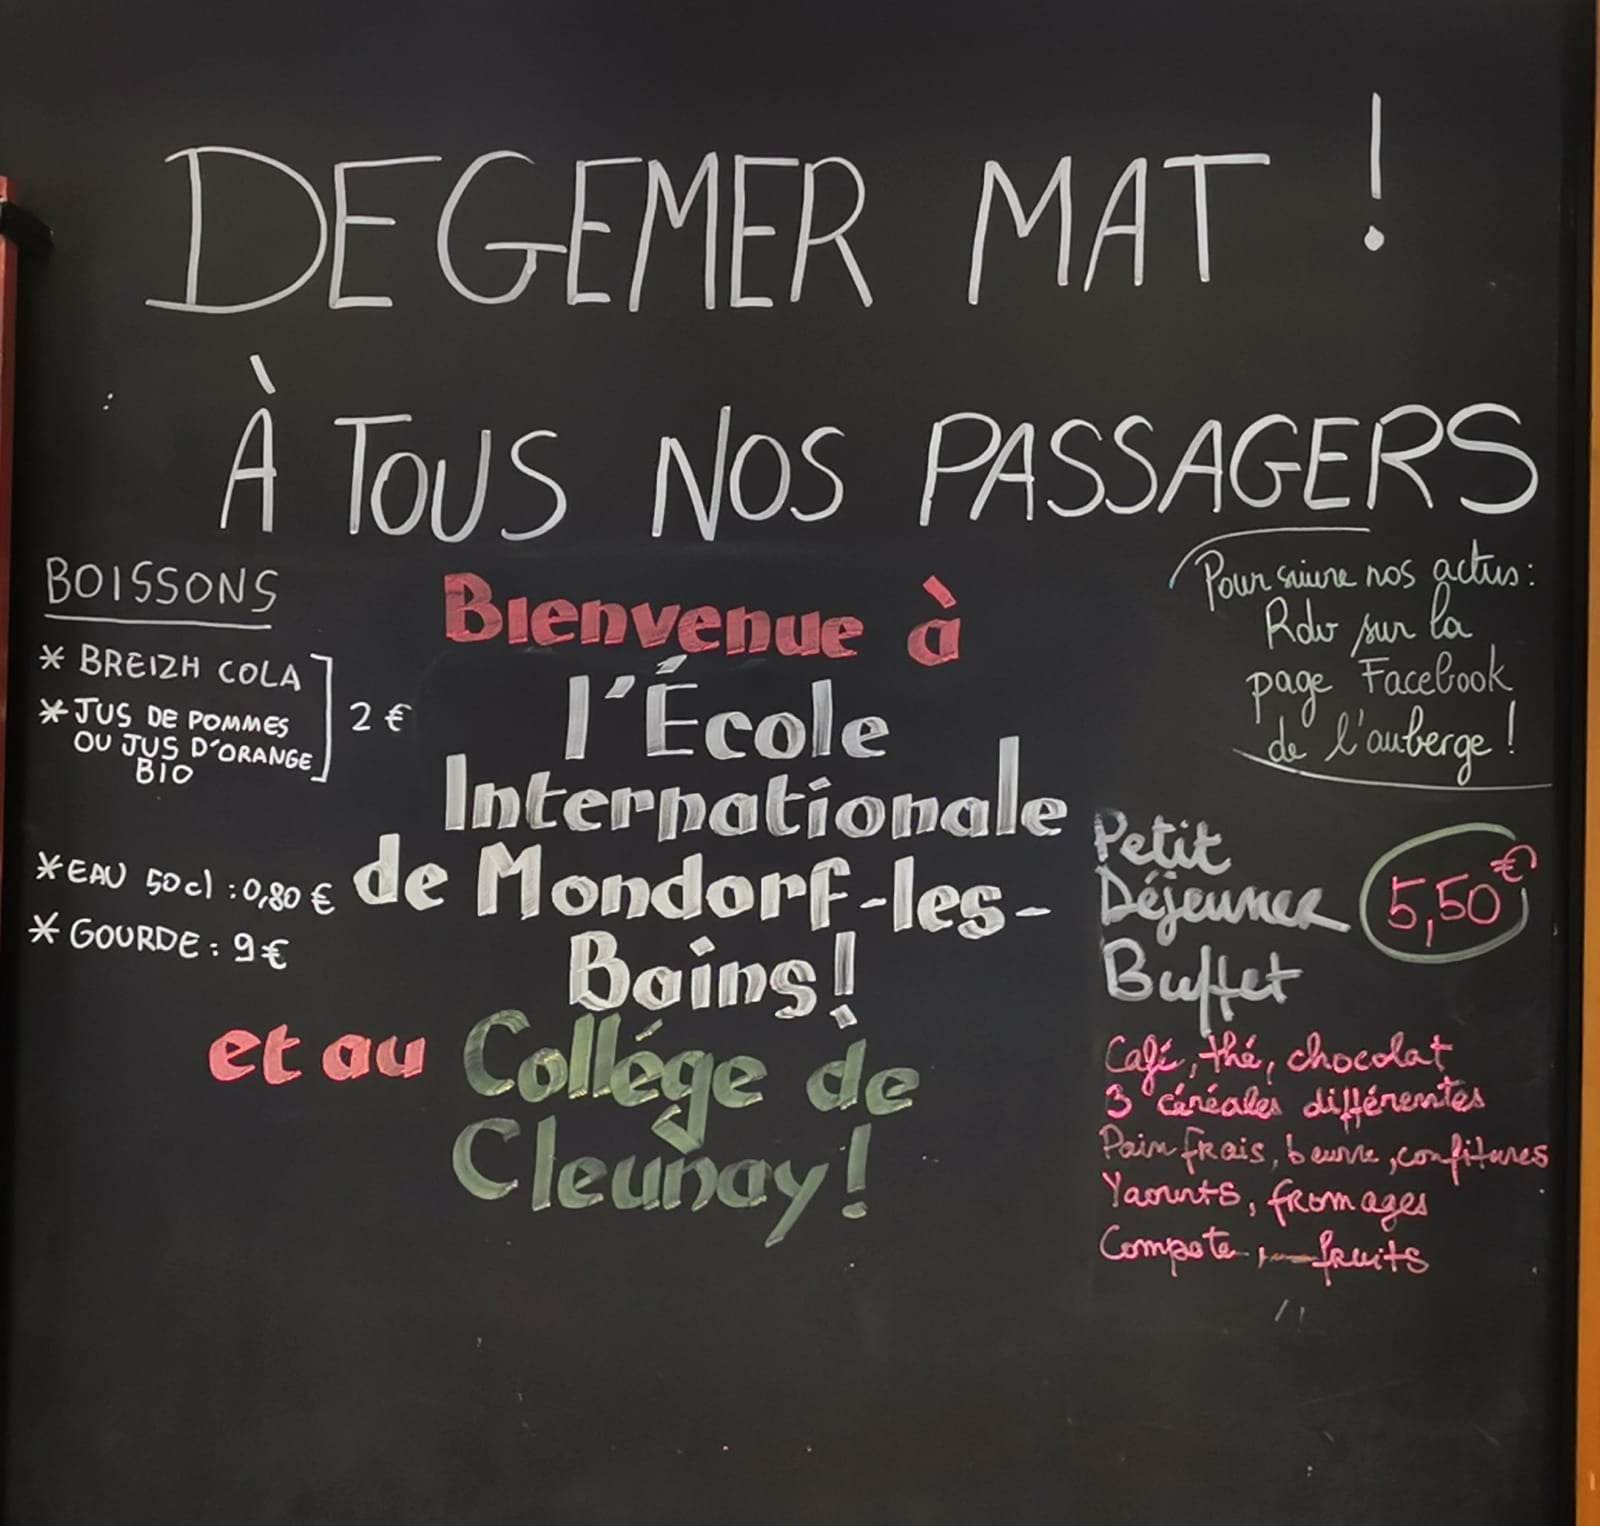 DEGEMER MAT !
À TOUS NOS PASSAGERS
BOISSONS
* BREIZH COLA
* JUS DE POMMES
OU JUS D'ORANGE
BIO
2 €
* EAU 50 cl : 0,80 €
* GOURDE : 9 €
Bienvenue à
l'École
Internationale
de Mondorf-les-
Bains !
et au Collége de
Cleunay !
Pour suivre nos actus :
Rdv sur la
page Facebook
de l'auberge !
Petit
Déjeuner
Buffet
5,50 €
Café, thé, chocolat
3 céréales différentes
Pain frais, beurre, confitures
Yaourts, fromages
Compote, fruits